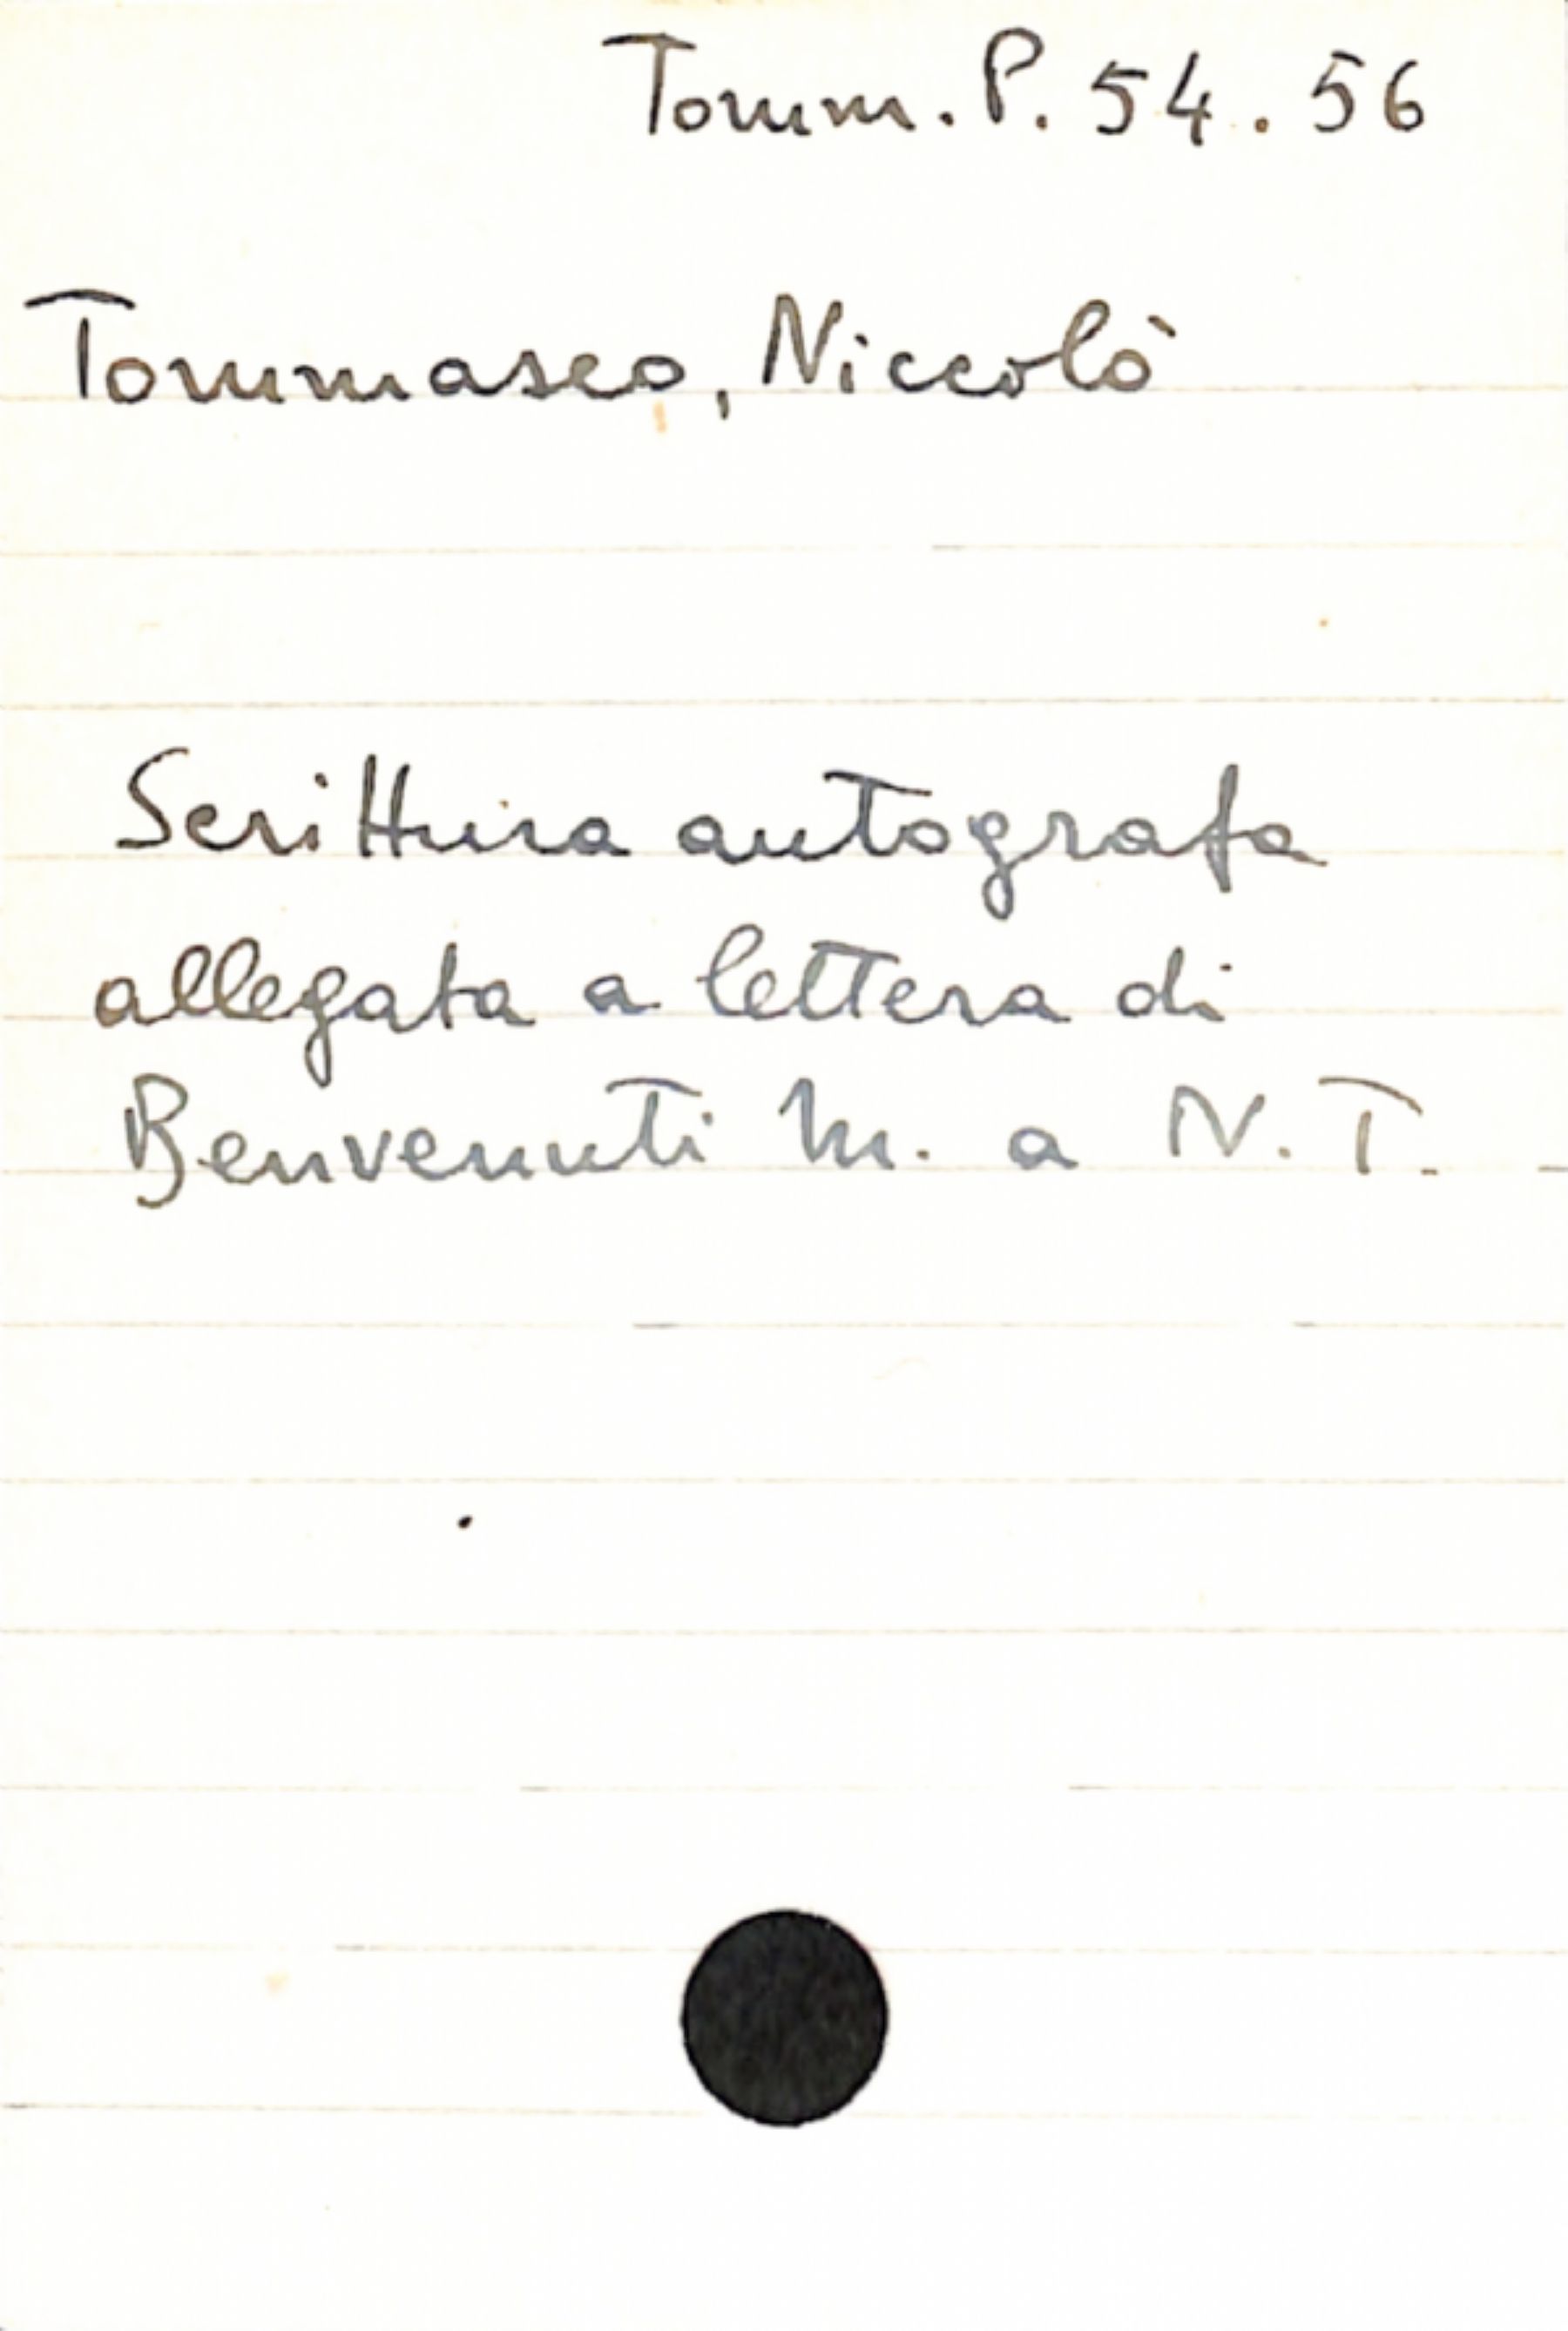 Tomm. P. 54. 56
Tommaseo, Niccolò
Scrittura autografa
allegata a lettera di
Benvenuti M. a N. T.